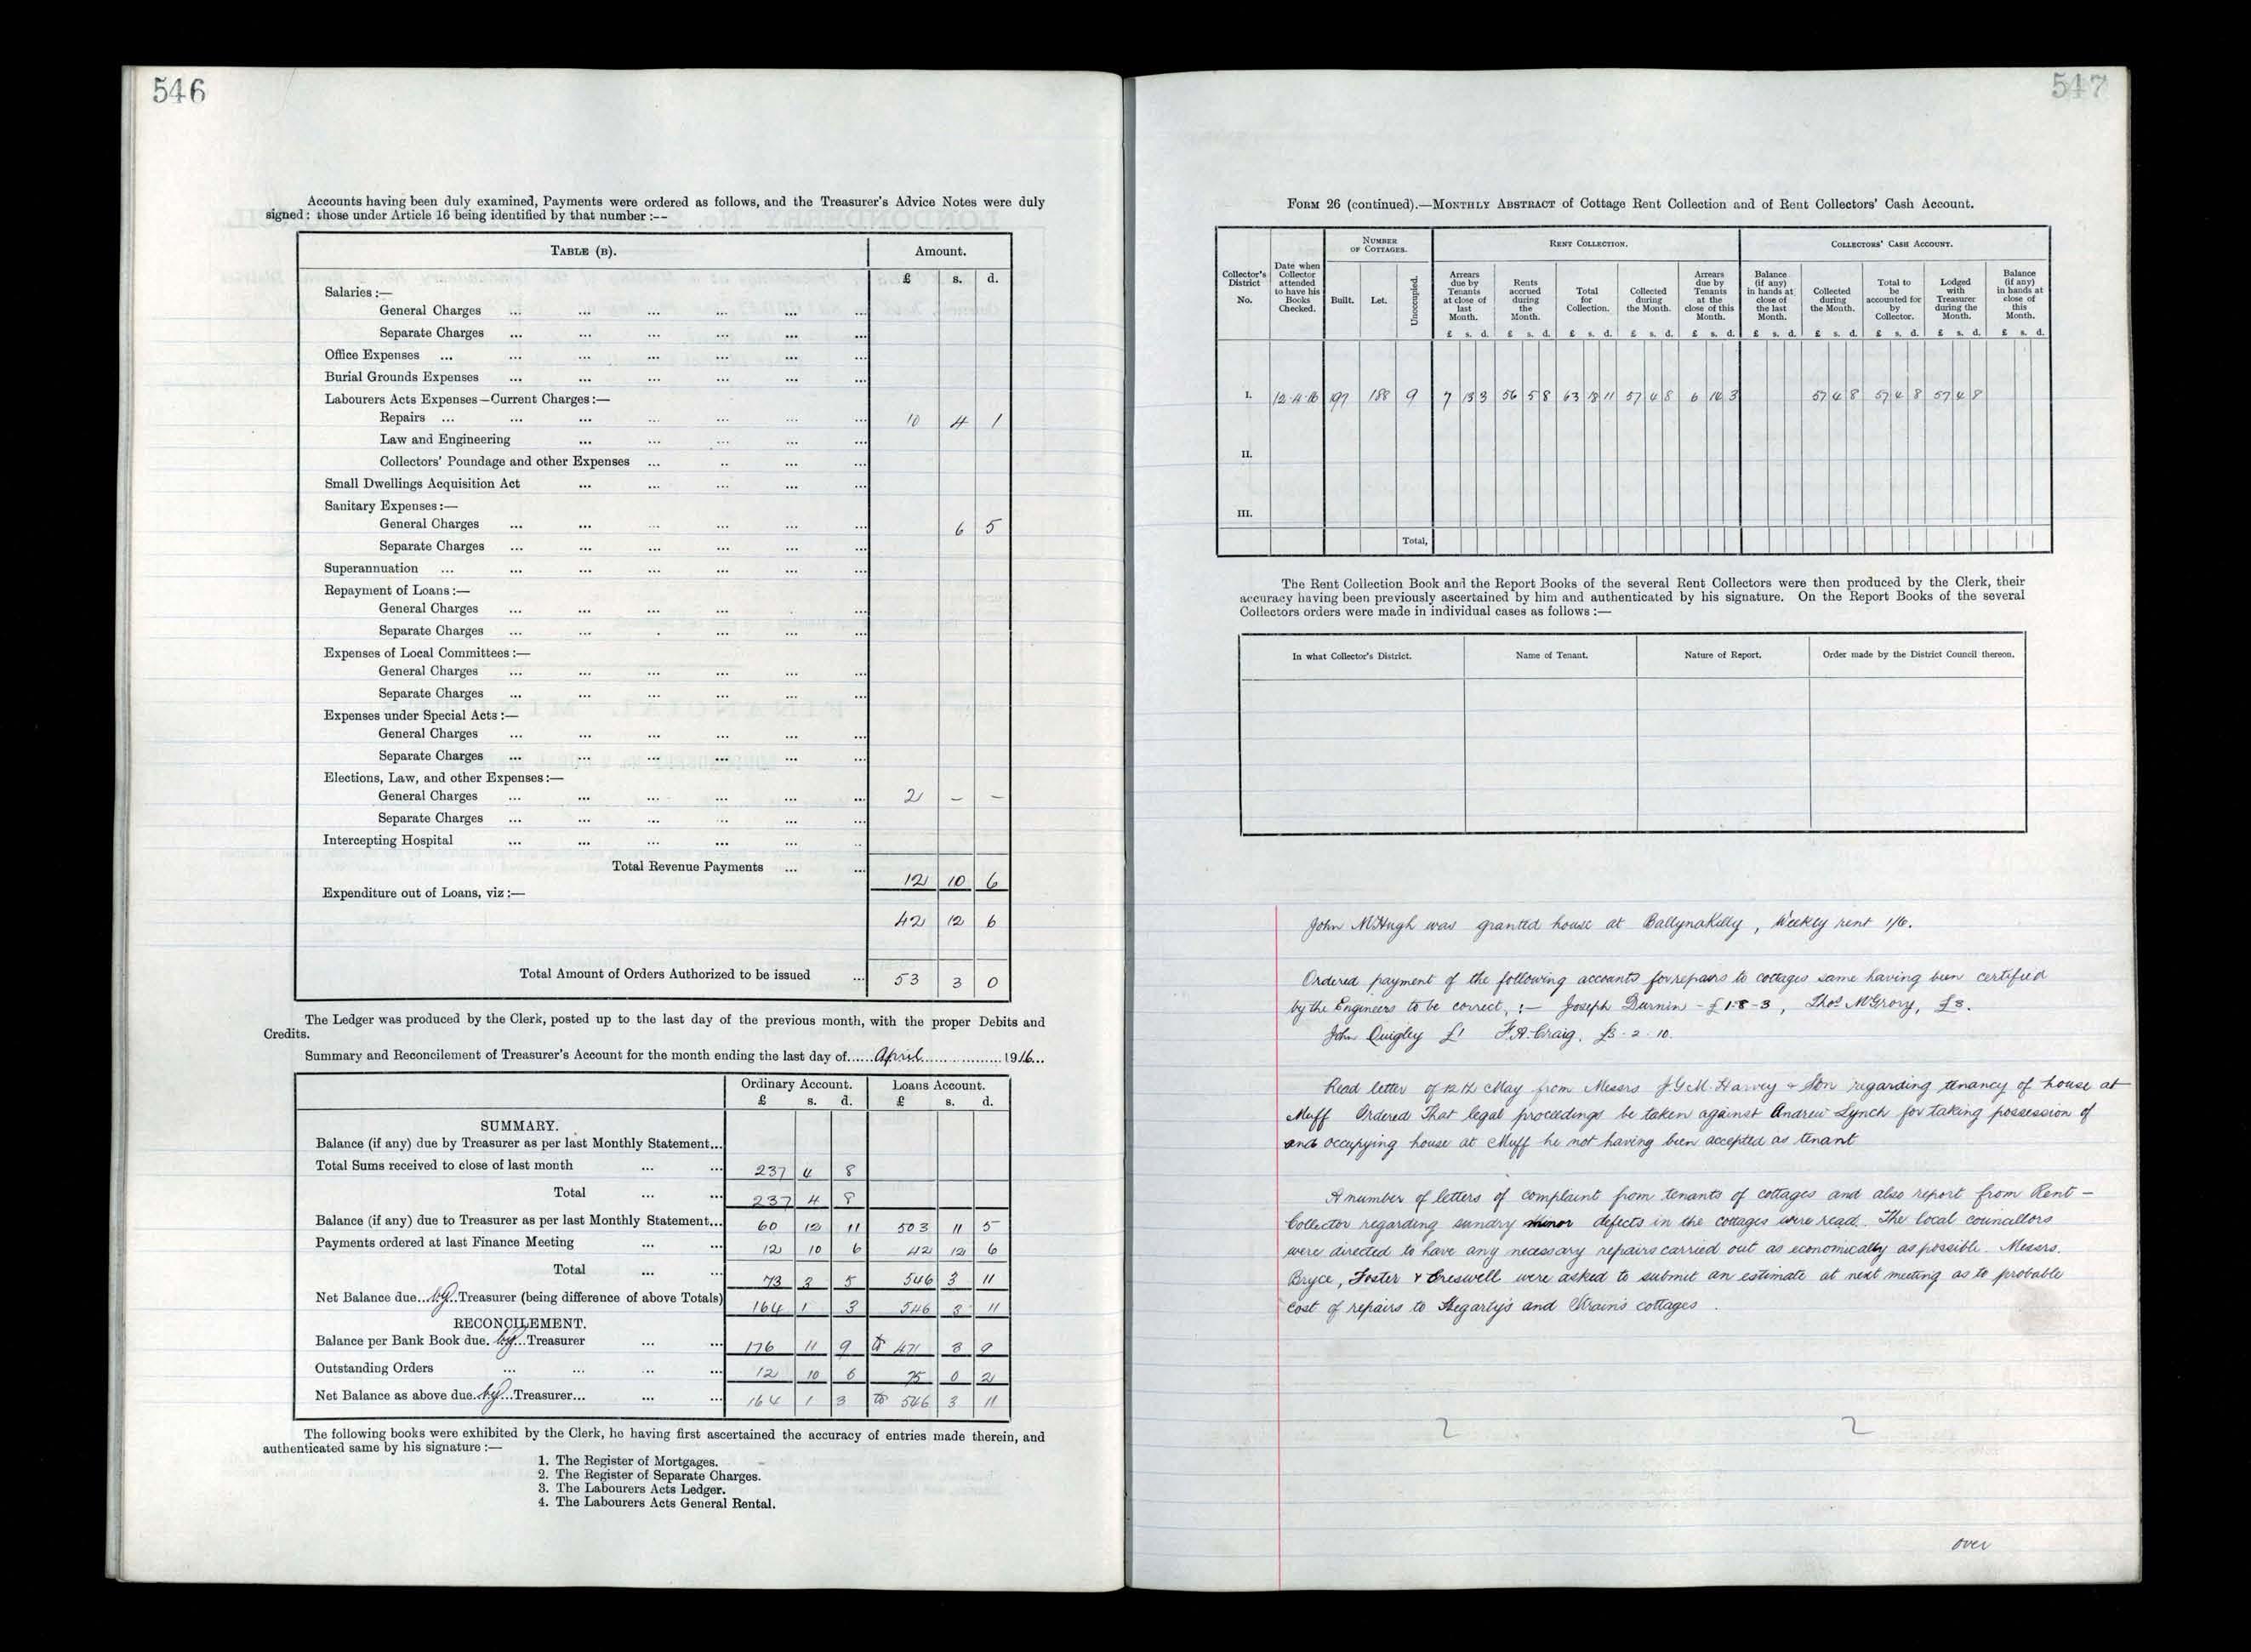 546
Accounts having been duly examined, Payments were ordered as follows, and the Treasurer's Advice Notes were duly
signed: those under Article 16 being identified by that number :--
TABLE (B). Amount.
£ s. d.
Salaries :—
General Charges ... ... ... ... ... ...
Separate Charges ... ... ... ... ... ...
Office Expenses ... ... ... ... ... ... ...
Burial Grounds Expenses ... ... ... ... ... ...
Labourers Acts Expenses—Current Charges :—
Repairs ... ... ... ... ... ... ... 10 4 1
Law and Engineering ... ... ... ... ...
Collectors' Poundage and other Expenses ... .. ... ...
Small Dwellings Acquisition Act ... ... ... ... ...
Sanitary Expenses :—
General Charges ... ... ... ... ... ... 6 5
Separate Charges ... ... ... ... ... ...
Superannuation ... ... ... ... ... ... ...
Repayment of Loans :—
General Charges ... ... ... ... . ... ...
Separate Charges ... ... . ... ... ...
Expenses of Local Committees :—
General Charges ... ... ... ... ... ...
Separate Charges ... ... ... ... ... ...
Expenses under Special Acts :—
General Charges ... ... ... ... ... ...
Separate Charges ... ... ... ... ... ...
Elections, Law, and other Expenses :—
General Charges ... ... ... ... ... ... 2 – –
Separate Charges ... ... ... ... ... ...
Intercepting Hospital ... ... ... ... ... ..
Total Revenue Payments ... ... 12 10 6
Expenditure out of Loans, viz :—
42 12 6
Total Amount of Orders Authorized to be issued ... 53 3 0
The Ledger was produced by the Clerk, posted up to the last day of the previous month, with the proper Debits and
Credits.
Summary and Reconcilement of Treasurer's Account for the month ending the last day of......April..................1916...
Ordinary Account. Loans Account.
£ s. d. £ s. d.
SUMMARY.
Balance (if any) due by Treasurer as per last Monthly Statement...
Total Sums received to close of last month ... ... 237 4 8
Total ... ... 237 4 8
Balance (if any) due to Treasurer as per last Monthly Statement... 60 12 11 503 11 5
Payments ordered at last Finance Meeting ... ... 12 10 6 42 12 6
Total ... ... 73 3 5 546 3 11
Net Balance due...by...Treasurer (being difference of above Totals) 164 1 3 546 3 11
RECONCILEMENT.
Balance per Bank Book due. by...Treasurer ... ... 176 11 9 to 471 3 9
Outstanding Orders ... ... ... ... 12 10 6 75 0 2
Net Balance as above due..by...Treasurer... ... ... 164 1 3 to 546 3 11
The following books were exhibited by the Clerk, he having first ascertained the accuracy of entries made therein, and
authenticated same by his signature :—
1. The Register of Mortgages.
2. The Register of Separate Charges.
3. The Labourers Acts Ledger.
4. The Labourers Acts General Rental.
547
FORM 26 (continued).—MONTHLY ABSTRACT of Cottage Rent Collection and of Rent Collectors' Cash Account.
Collector's District No.
Date when Collector attended to have his Books Checked.
NUMBER OF COTTAGES.
Built. Let. Unoccupied.
RENT COLLECTION.
Arrears due by Tenants at close of last Month.
Rents accrued during the Month.
Total for Collection.
Collected during the Month.
Arrears due by Tenants at the close of this Month.
COLLECTORS' CASH ACCOUNT.
Balance (if any) in hands at close of the last Month.
Collected during the Month.
Total to be accounted for by Collector.
Lodged with Treasurer during the Month.
Balance (if any) in hands at close of this Month.
£ s. d. £ s. d. £ s. d. £ s. d. £ s. d. £ s. d. £ s. d. £ s. d. £ s. d. £ s. d.
I. 197 188 9 7 13 3 56 5 8 63 18 11 57 4 8 6 14 3 57 4 8 57 4 8 57 4 8
II.
III.
Total,
The Rent Collection Book and the Report Books of the several Rent Collectors were then produced by the Clerk, their
accuracy having been previously ascertained by him and authenticated by his signature. On the Report Books of the several
Collectors orders were made in individual cases as follows :—
In what Collector's District. Name of Tenant. Nature of Report. Order made by the District Council thereon.
John McHugh was granted house at Ballynakilly, Weekly rent 1/6.
Ordered payment of the following accounts for repairs to cottages same having been certified
by the Engineers to be correct, :— Joseph Durnin - £1-8-3, Thos McGrory, £3.
John Quigley £1 F.A. Craig. £3-2-10.
Read letter of 12th May from Messrs J.G.M. Harvey & Son regarding tenancy of house at
Muff Ordered That legal proceedings be taken against Andrew Lynch for taking possession of
and occupying house at Muff he not having been accepted as tenant
A number of letters of complaint from tenants of cottages and also report from Rent –
Collector regarding sundry minor defects in the cottages were read. The local councillors
were directed to have any necessary repairs carried out as economically as possible. Messrs.
Bryce, Foster & Creswell were asked to submit an estimate at next meeting as to probable
cost of repairs to Hegarty's and Strain's cottages.
over